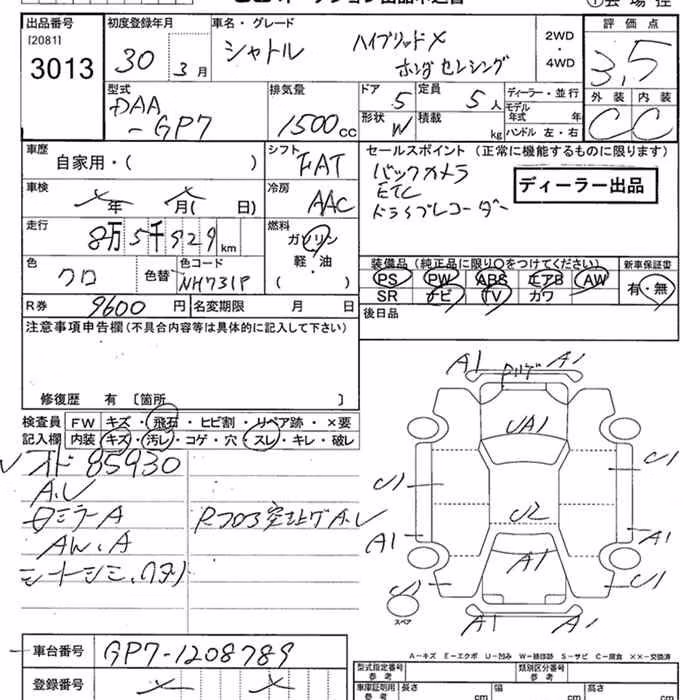 出品番号
[20811]
3013
初度登録年月
30
3月
車名・グレード
シャトル
ハイブリッドX
ホンダセンシング
2WD
・
4WD
評価点
3,5
外装
内装
C
C
型式
DAA
-GP7
排気量
1500cc
ドア
5
定員
5人
形状
W
積載
kg
ディーラー・並行
モデル年式 年
ハンドル 左・右
車歴
自家用・( )
シフト
FAT
セールスポイント (正常に機能するものに限ります)
バックカメラ
ETC
ドライブレコーダー
ディーラー出品
車検
年 月( 日)
冷房
AAC
走行
8万5千929km
燃料
ガソリン
軽・油
( )
色
クロ
色替
色コード
NH731P
装備品 (純正品に限り○をつけてください)
PS PW ABS エアB AW
SR ナビ TV カワ
新車保証書
有・無
R券
9600円
名変期限 月 日
後日品
注意事項申告欄(不具合内容等は具体的に記入して下さい)
修復歴 有 〔箇所 〕
検査員記入欄
FW キズ・飛石・ヒビ割・リペア跡・×要
内装 キズ・汚レ・コゲ・穴・スレ・キレ・破レ
オド 85930
A.U
ロミラーA
AW.A
シートシミ.
Rフロア突上ゲA.U
A1
A1
UA1
U1
U1
U2
A1
A1
A1
U1
U1
A1
A1
スペア
A-キズ E-エクボ U-凹み W-補修跡 S-サビ C-腐食 ××-交換済
車台番号
GP7-1208789
登録番号
型式指定番号
参考
類別区分番号
参考
車庫証明用
参考
長さ
cm
幅
cm
高さ
cm